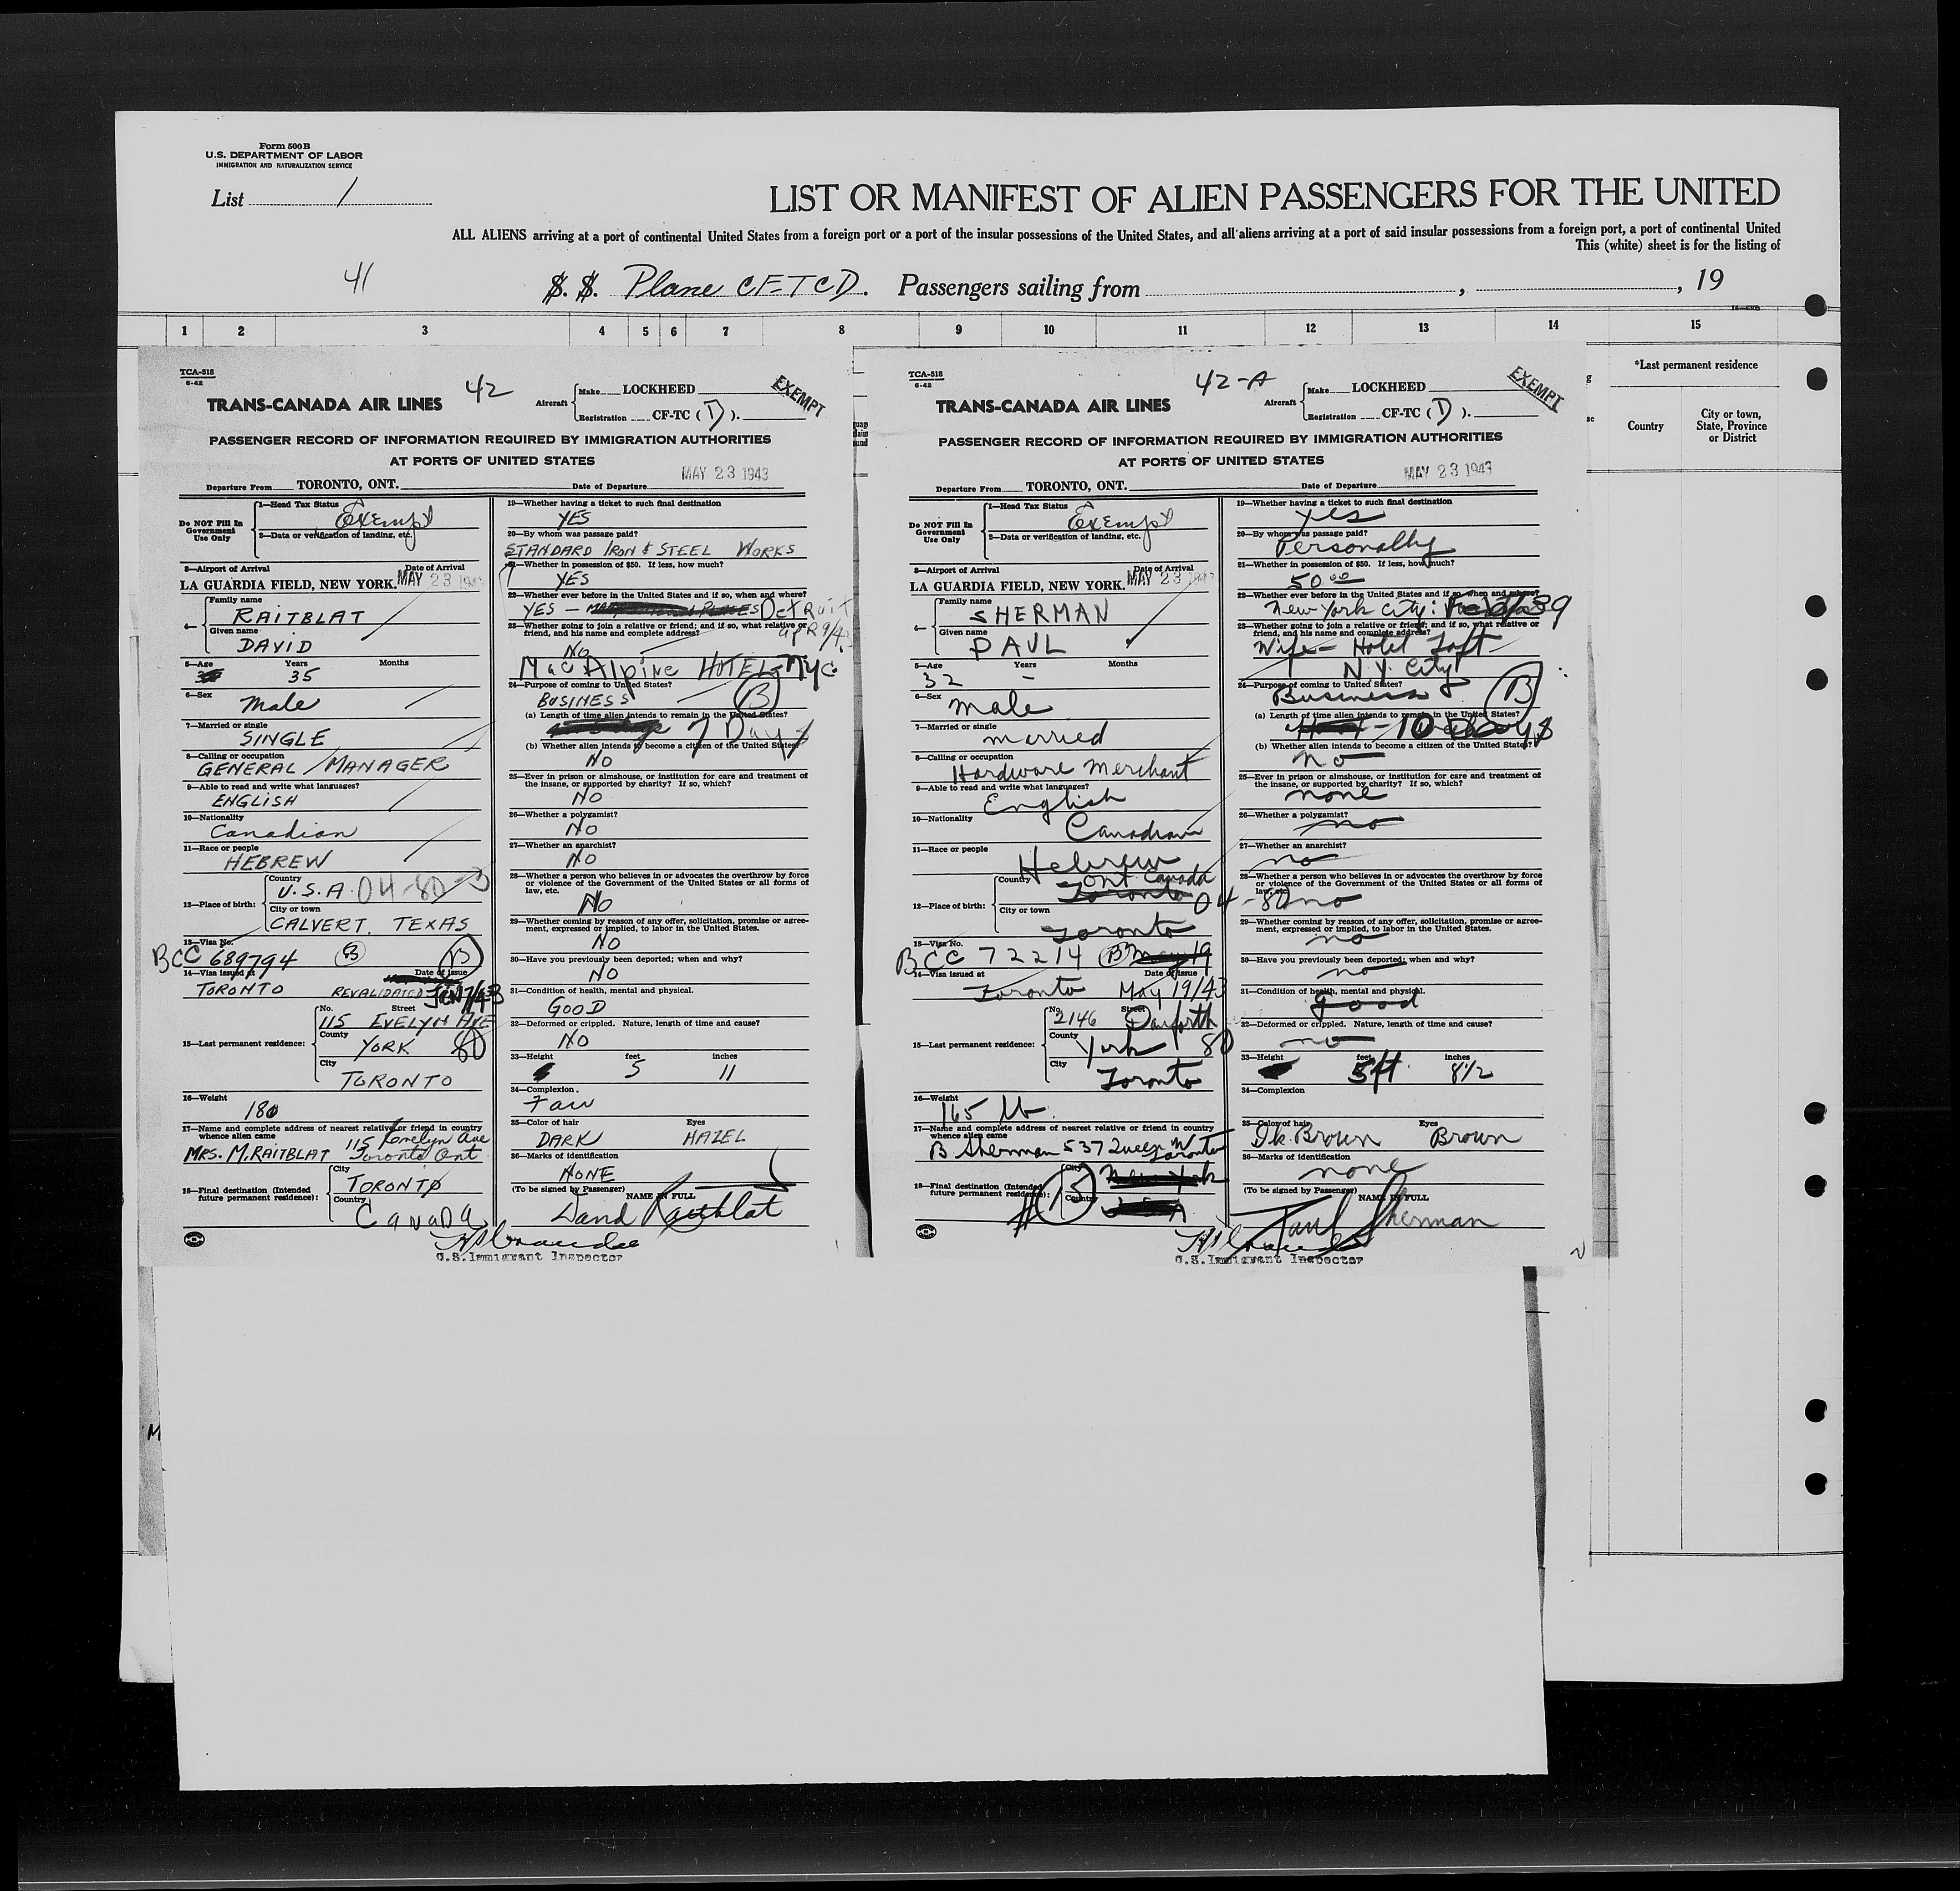 Form 500B
U.S. DEPARTMENT OF LABOR
IMMIGRATION AND NATURALIZATION SERVICE
List 1
LIST OR MANIFEST OF ALIEN PASSENGERS FOR THE UNITED
ALL ALIENS arriving at a port of continental United States from a foreign port or a port of the insular possessions of the United States, and all aliens arriving at a port of said insular possessions from a foreign port, a port of continental United
This (white) sheet is for the listing of
41
S. S. Plane CF-TCD. Passengers sailing from , , 19
1 2 3 4 5 6 7 8 9 10 11 12 13 14 15
*Last permanent residence
Country
City or town, State, Province or District
TCA-518
6-42
42
TRANS-CANADA AIR LINES
Aircraft
Make LOCKHEED
Registration CF-TC ( D ).
EXEMPT
PASSENGER RECORD OF INFORMATION REQUIRED BY IMMIGRATION AUTHORITIES
AT PORTS OF UNITED STATES
MAY 23 1943
Departure From TORONTO, ONT. Date of Departure
Do NOT Fill In Government Use Only
1—Head Tax Status
Exempt
2—Data or verification of landing, etc.
3—Airport of Arrival Date of Arrival
LA GUARDIA FIELD, NEW YORK. MAY 23 1943
4—
Family name
RAITBLAT
Given name
DAVID
5—Age Years Months
35
6—Sex
Male
7—Married or single
SINGLE
8—Calling or occupation
GENERAL MANAGER
9—Able to read and write what languages?
ENGLISH
10—Nationality
Canadian
11—Race or people
HEBREW
12—Place of birth:
Country
U.S.A. 04-80-3
City or town
CALVERT. TEXAS
13—Visa No.
BCC 689794 B B
14—Visa issued at Date of issue
TORONTO REVALIDATED
15—Last permanent residence:
No. Street
115 EVELYN AVE
County
YORK 80
City
TORONTO
16—Weight
180
17—Name and complete address of nearest relative or friend in country whence alien came
MRS. M. RAITBLAT 115 Evelyn Ave Toronto Ont
18—Final destination (Intended future permanent residence):
City
TORONTO
Country
CANADA
19—Whether having a ticket to such final destination
YES
20—By whom was passage paid?
STANDARD IRON & STEEL WORKS
21—Whether in possession of $50. If less, how much?
YES
22—Whether ever before in the United States and if so, when and where?
YES — Detroit
23—Whether going to join a relative or friend; and if so, what relative or friend, and his name and complete address?
NO
MacAlpine HOTEL NYC
24—Purpose of coming to United States?
BUSINESS B
(a) Length of time alien intends to remain in the United States?
7 Days
(b) Whether alien intends to become a citizen of the United States?
NO
25—Ever in prison or almshouse, or institution for care and treatment of the insane, or supported by charity? If so, which?
NO
26—Whether a polygamist?
NO
27—Whether an anarchist?
NO
28—Whether a person who believes in or advocates the overthrow by force or violence of the Government of the United States or all forms of law, etc.
NO
29—Whether coming by reason of any offer, solicitation, promise or agreement, expressed or implied, to labor in the United States.
NO
30—Have you previously been deported; when and why?
NO
31—Condition of health, mental and physical.
GOOD
32—Deformed or crippled. Nature, length of time and cause?
NO
33—Height feet inches
5 11
34—Complexion.
Fair
35—Color of hair Eyes
DARK HAZEL
36—Marks of identification
NONE
(To be signed by Passenger) NAME IN FULL
David Raitblat
U.S. Immigrant Inspector
TCA-518
6-42
42-A
TRANS-CANADA AIR LINES
Aircraft
Make LOCKHEED
Registration CF-TC ( D ).
EXEMPT
PASSENGER RECORD OF INFORMATION REQUIRED BY IMMIGRATION AUTHORITIES
AT PORTS OF UNITED STATES
MAY 23 1943
Departure From TORONTO, ONT. Date of Departure
Do NOT Fill In Government Use Only
1—Head Tax Status
Exempt
2—Data or verification of landing, etc.
3—Airport of Arrival Date of Arrival
LA GUARDIA FIELD, NEW YORK. MAY 23 1943
4—
Family name
SHERMAN
Given name
PAUL
5—Age Years Months
32 —
6—Sex
male
7—Married or single
married
8—Calling or occupation
Hardware Merchant
9—Able to read and write what languages?
English
10—Nationality
Canadian
11—Race or people
Hebrew
12—Place of birth:
Country
Ont Canada
Toronto 04-80
City or town
Toronto
13—Visa No.
BCC 72214 B May 19
14—Visa issued at Date of issue
Toronto May 19/43
15—Last permanent residence:
No. Street
2146 Danforth
County
York 80
City
Toronto
16—Weight
165 lb.
17—Name and complete address of nearest relative or friend in country whence alien came
B Sherman 537 Queen W Toronto
18—Final destination (Intended future permanent residence):
City
New York
Country
USA
B
19—Whether having a ticket to such final destination
yes
20—By whom was passage paid?
Personally
21—Whether in possession of $50. If less, how much?
50.00
22—Whether ever before in the United States and if so, when and where?
New York City:
23—Whether going to join a relative or friend; and if so, what relative or friend, and his name and complete address?
Wife — Hotel Taft
N.Y. City
24—Purpose of coming to United States?
Business B
(a) Length of time alien intends to remain in the United States?
10 days
(b) Whether alien intends to become a citizen of the United States?
no
25—Ever in prison or almshouse, or institution for care and treatment of the insane, or supported by charity? If so, which?
none
26—Whether a polygamist?
no
27—Whether an anarchist?
no
28—Whether a person who believes in or advocates the overthrow by force or violence of the Government of the United States or all forms of law, etc.
no
29—Whether coming by reason of any offer, solicitation, promise or agreement, expressed or implied, to labor in the United States.
no
30—Have you previously been deported; when and why?
no
31—Condition of health, mental and physical.
good
32—Deformed or crippled. Nature, length of time and cause?
no
33—Height feet inches
5ft. 8½
34—Complexion
35—Color of hair Eyes
Dk. Brown Brown
36—Marks of identification
none
(To be signed by Passenger) NAME IN FULL
Paul Sherman
U.S. Immigrant Inspector